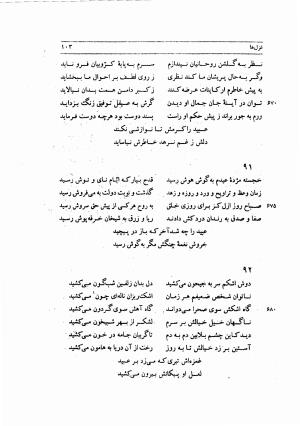 غزل‌ها ۱۰۳
نظر به گلشن روحانیان نیندازم سرم به پایهٔ کرّوبیان فرو ناید
وگر به حال پریشان ما کنی نظری ز روی لطف بر احوال ما ببخشاید
به پیش خاطرم از کاینات عرضه کنند ز کبر دامن همت بدان نیالاید
۶۷۰ توان در آینهٔ جان جمال او دیدن گرش به صیقل توفیق زنگ بزداید
ورم به جور براند ز پیش حکم او راست پسند دوست بود هرچه دوست فرماید
عبید را کرمش تا نوازشی نکند
دلش ز غم نرهد خاطرش نیاساید
۹۱
خجسته مژدهٔ عیدم به گوش هوش رسید قدح بیار که ایام نای و نوش رسید
زمان وعظ و تراویح و ورد و روزه و زهد گذشت و نوبت دولت به می‌فروش رسید
۶۷۵ صباح روز ازل کز برای روزی خلق به روح هرکس از پیش حق سروش رسید
صفا و صدق به رندان درد کش دادند ریا و زرق به شیخان خرقه‌پوش رسید
عبید را چه شد آخر که باز در پیچید
خروش نغمهٔ چنگش مگر به گوش رسید
۹۲
دوش اشکم سر به جیحون می‌کشید دل بدان زلفین شبگون می‌کشید
ناتوان شخص ضعیفم هر زمان اشک‌ریزان ناله‌ای چون می‌کشید
۶۸۰ گاه اشکش سوی صحرا می‌دواند گاه آهش سوی گردون می‌کشید
ناگهان خیل خیالش بر سرم لشکر از بهر شبیخون می‌کشید
دیدکاین چشم بلابین دم به دم تا گریبان جامه در خون می‌کشید
آستین بر زد خیالش تا به روز رخت از آن دریا به هامون می‌کشید
غمزه‌اش تیری که می‌زد بر عبید
لعل او پیکانش بیرون می‌کشید